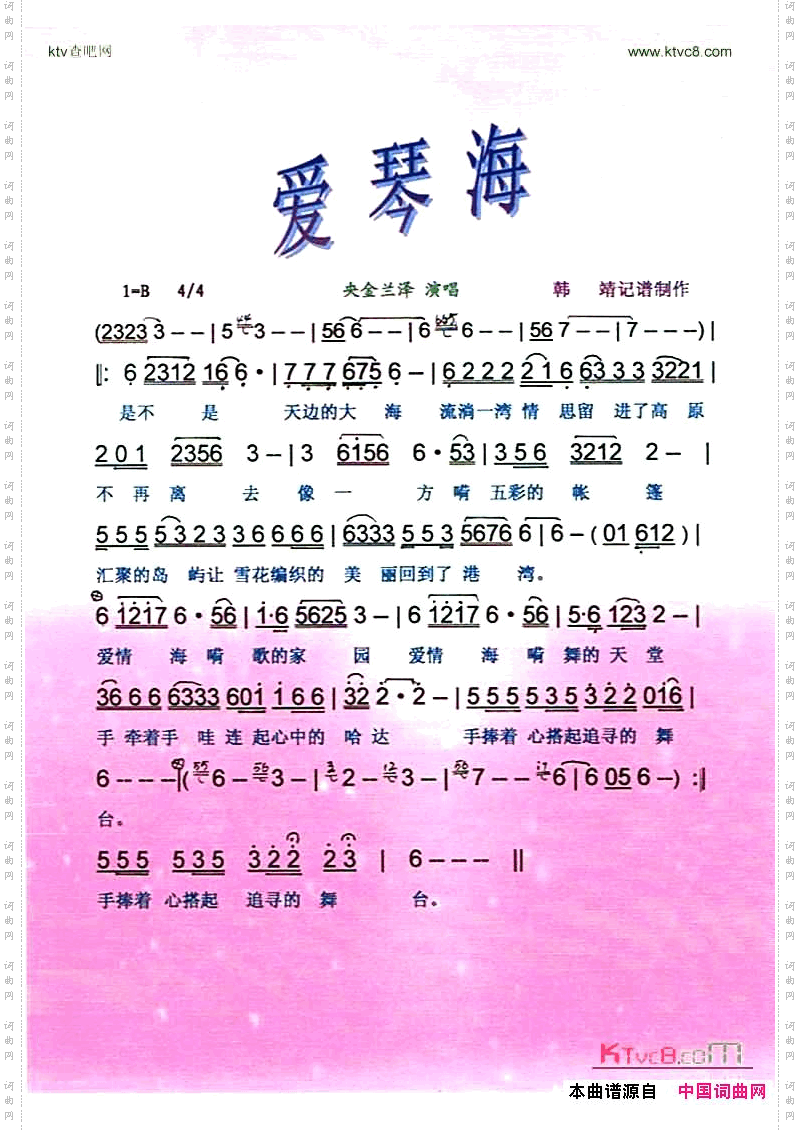 ktv查吧网 www.ktvc8.com
爱琴海
1=B 4/4 央金兰泽 演唱 韩 靖记谱制作
(2323 3 – – | 5 3 – – | 56 6 – – | 6 6 – – | 56 7 – – | 7 – – –) |
‖: 6 2312 16 6 · | 7 7 7 675 6 – | 6 2 2 2 2 1 6 6 3 3 3 3221 |
是不 是 天边的大 海 流淌一湾 情 思留 进了高 原
2 0 1 2356 3 – | 3 6156 6 · 53 | 3 5 6 3212 2 – |
不 再 离 去 像 一 方 嗬 五彩的 帐 篷
5 5 5 5 3 2 3 3 6 6 6 6 6 | 6333 5 5 3 5676 6 | 6 – ( 01 612 ) |
汇聚的岛 屿让 雪花编织的 美 丽回到了 港 湾。
6 1217 6 · 56 | 1·6 5625 3 – | 6 1217 6 · 56 | 5·6 123 2 – |
爱情 海 嗬 歌的家 园 爱情 海 嗬 舞的 天 堂
36 6 6 6333 601 1 6 6 | 32 2 · 2 – | 5 5 5 5 3 5 3 2 2 016 |
手 牵着手 哇 连 起心中的 哈 达 手捧着 心搭起追寻的 舞
6 – – – | ( 6 – 3 – | 2 – 3 – | 7 – – 6 | 6 05 6 – ) :‖
台。
5 5 5 5 3 5 3 2 2 2 3 | 6 – – – ‖
手捧着 心搭起 追寻的 舞 台。
KTvc8.com
本曲谱源自 中国词曲网
词曲网